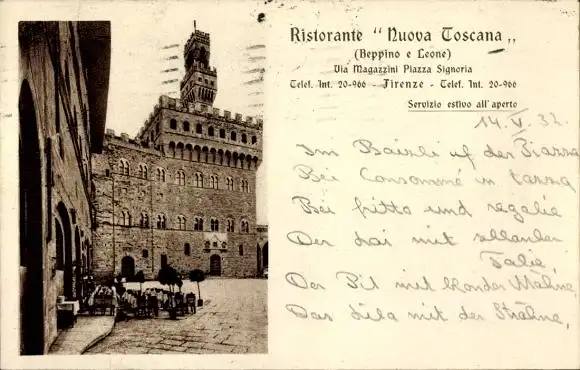 Ristorante "Nuova Toscana"
(Beppino e Leone)
Via Magazzini Piazza Signoria
Telef. Int. 20-966 - Firenze - Telef. Int. 20-966
Servizio estivo all'aperto
14. V. 32
Im uf der Piazza
Bei Consommé in tazza
Bei fritto und regalie
Der mit schlanker
Talie,
Der Pit mit blonder Mähne,
Das Lila mit der Strähne,